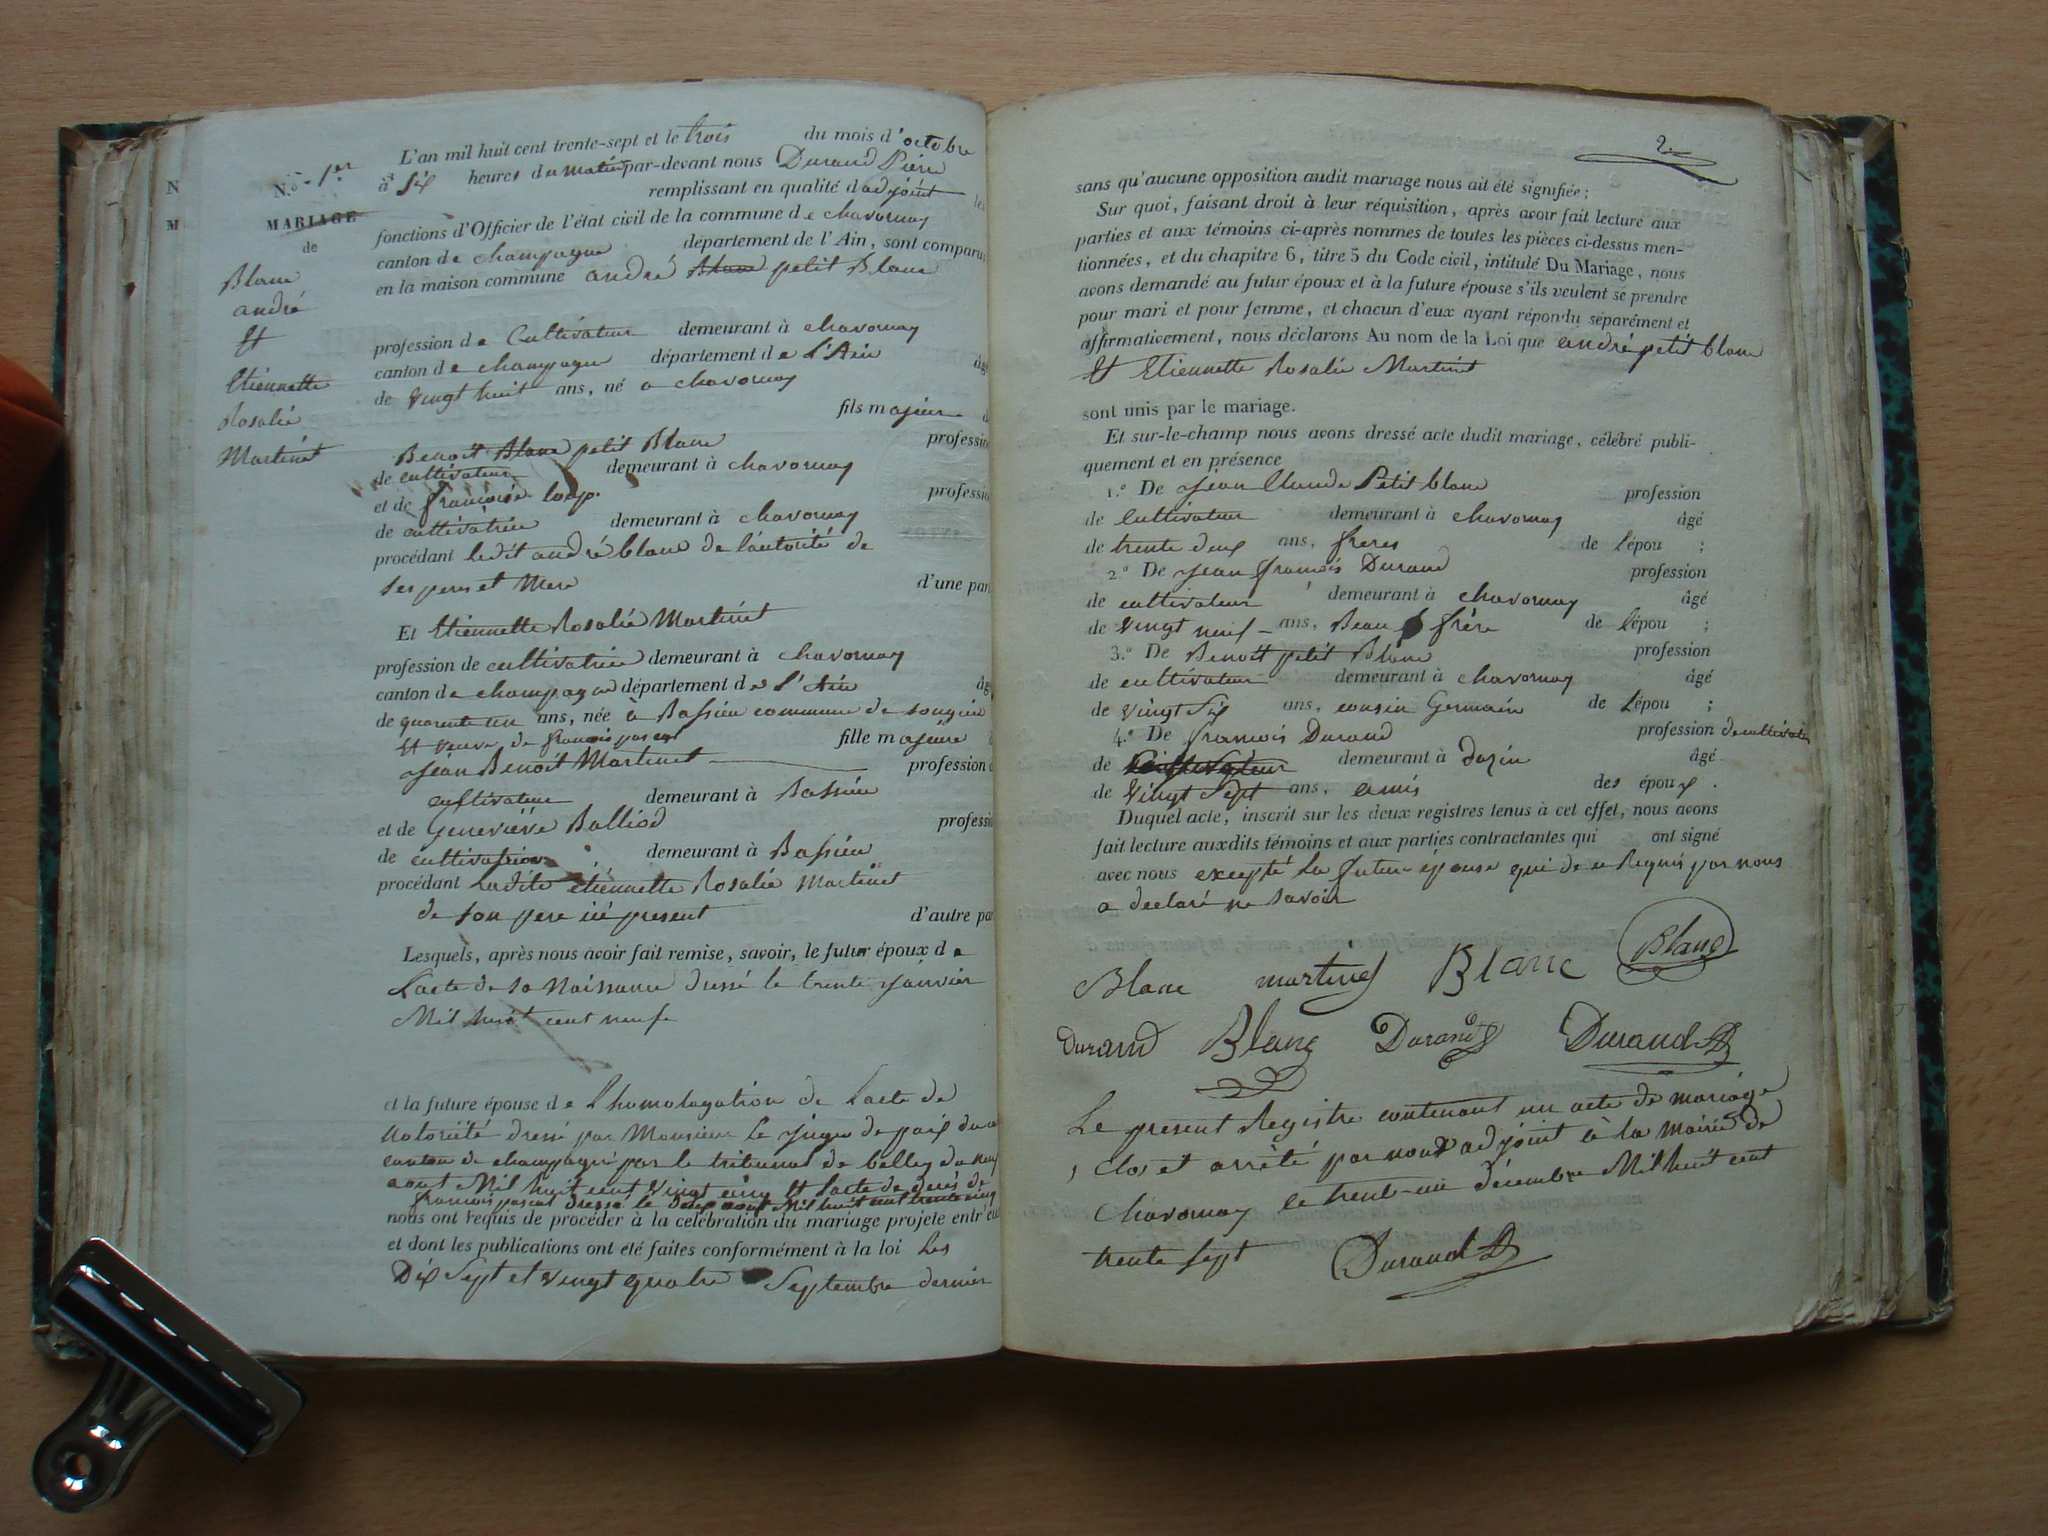 N.
M
N.o 1er
MARIAGE
de
Blanc
andré
Et
Etiennette
Rosalie
Martinet
L'an mil huit cent trente-sept et le trois du mois d'octobre
à six heures du matin par-devant nous Durand Piére
remplissant en qualité d'adjoint les
fonctions d'Officier de l'état civil de la commune de chavornay
canton de champagne département de l'Ain, sont comparus
en la maison commune andré Blanc petit Blanc
profession de Cultivateur demeurant à chavornay
canton de champagne département de l'Ain âgé
de vingt huit ans, né a chavornay
fils majeur d
Benoit Blanc petit Blanc profession
de cultivateur demeurant à chavornay
et de françoise loup profession
de cultivatrice demeurant à chavornay
procédant ledit andré blanc de l'autorité de
ses peres et Mere d'une part
Et Etiennette Rosalie Martinet
profession de cultivatrice demeurant à chavornay
canton de champagne département de l'Ain âg
de quarente un ans, née à Bassieu commune de songieu
Et veuve de françois pascal fille majeure d
Jean Benoit Martinet profession d
cultivateur demeurant à Bassieu
et de Geneviève Balliod professi
de cultivatrice demeurant à Bassieu
procédant Ladite etiennette Rosalie Martinet
de son pere ici present d'autre par
Lesquels, après nous avoir fait remise, savoir, le futur époux de
L'acte de sa Naissance dressé le trente janvier
Mil huit cent neuf
et la future épouse de L'homologation de L'acte de
Notoriété dressé par Monsieur Le Juge de paix du
canton de champagne par le tribunal de belley du neuf
aout Mil huit cent vingt cinq Et l'acte de deces de
francois pascal dressé le deux aout Mil huit cent trente cinq
nous ont requis de procéder à la célébration du mariage projeté entr'eux
et dont les publications ont été faites conformément à la loi Les
Dix Sept et vingt quatre Septembre dernier
2
sans qu'aucune opposition audit mariage nous ait été signifiée;
Sur quoi, faisant droit à leur réquisition, après avoir fait lecture aux
parties et aux témoins ci-après nommés de toutes les pièces ci-dessus men-
tionnées, et du chapitre 6, titre 5 du Code civil, intitulé Du Mariage, nous
avons demandé au futur époux et à la future épouse s'ils veulent se prendre
pour mari et pour femme, et chacun d'eux ayant répondu séparément et
affirmativement, nous déclarons Au nom de la Loi que andré petit blanc
Et Etiennette Rosalie Martinet
sont unis par le mariage.
Et sur-le-champ nous avons dressé acte dudit mariage, célébré publi-
quement et en présence
1.o De Jean Claude Petit blanc profession
de Cultivateur demeurant à chavornay âgé
de trente deux ans, freres de l'épou ;
2.o De Jean francois Durand profession
de cultivateur demeurant à chavornay âgé
de vingt neuf ans, Beau frère de l'épou ;
3.o De Benoit petit Blanc profession
de cultivateur demeurant à chavornay âgé
de vingt Six ans, cousin Germain de l'épou ;
4.o De francois Durand profession de cultivateur
de Cultivateur demeurant à dazin âgé
de vingt Sept ans, amis des époux .
Duquel acte, inscrit sur les deux registres tenus à cet effet, nous avons
fait lecture auxdits témoins et aux parties contractantes qui ont signé
avec nous excepté La future épouse qui de ce Requis par nous
a declaré ne savoir
Blanc martinet Blanc Blanc
durand Blanc Durand Durand
Le present Registre contenant un acte de mariage
Clos et arrêté par nous adjoint à la Mairie de
Chavornay le trente-un décembre Mil huit cent
trente Sept Durand